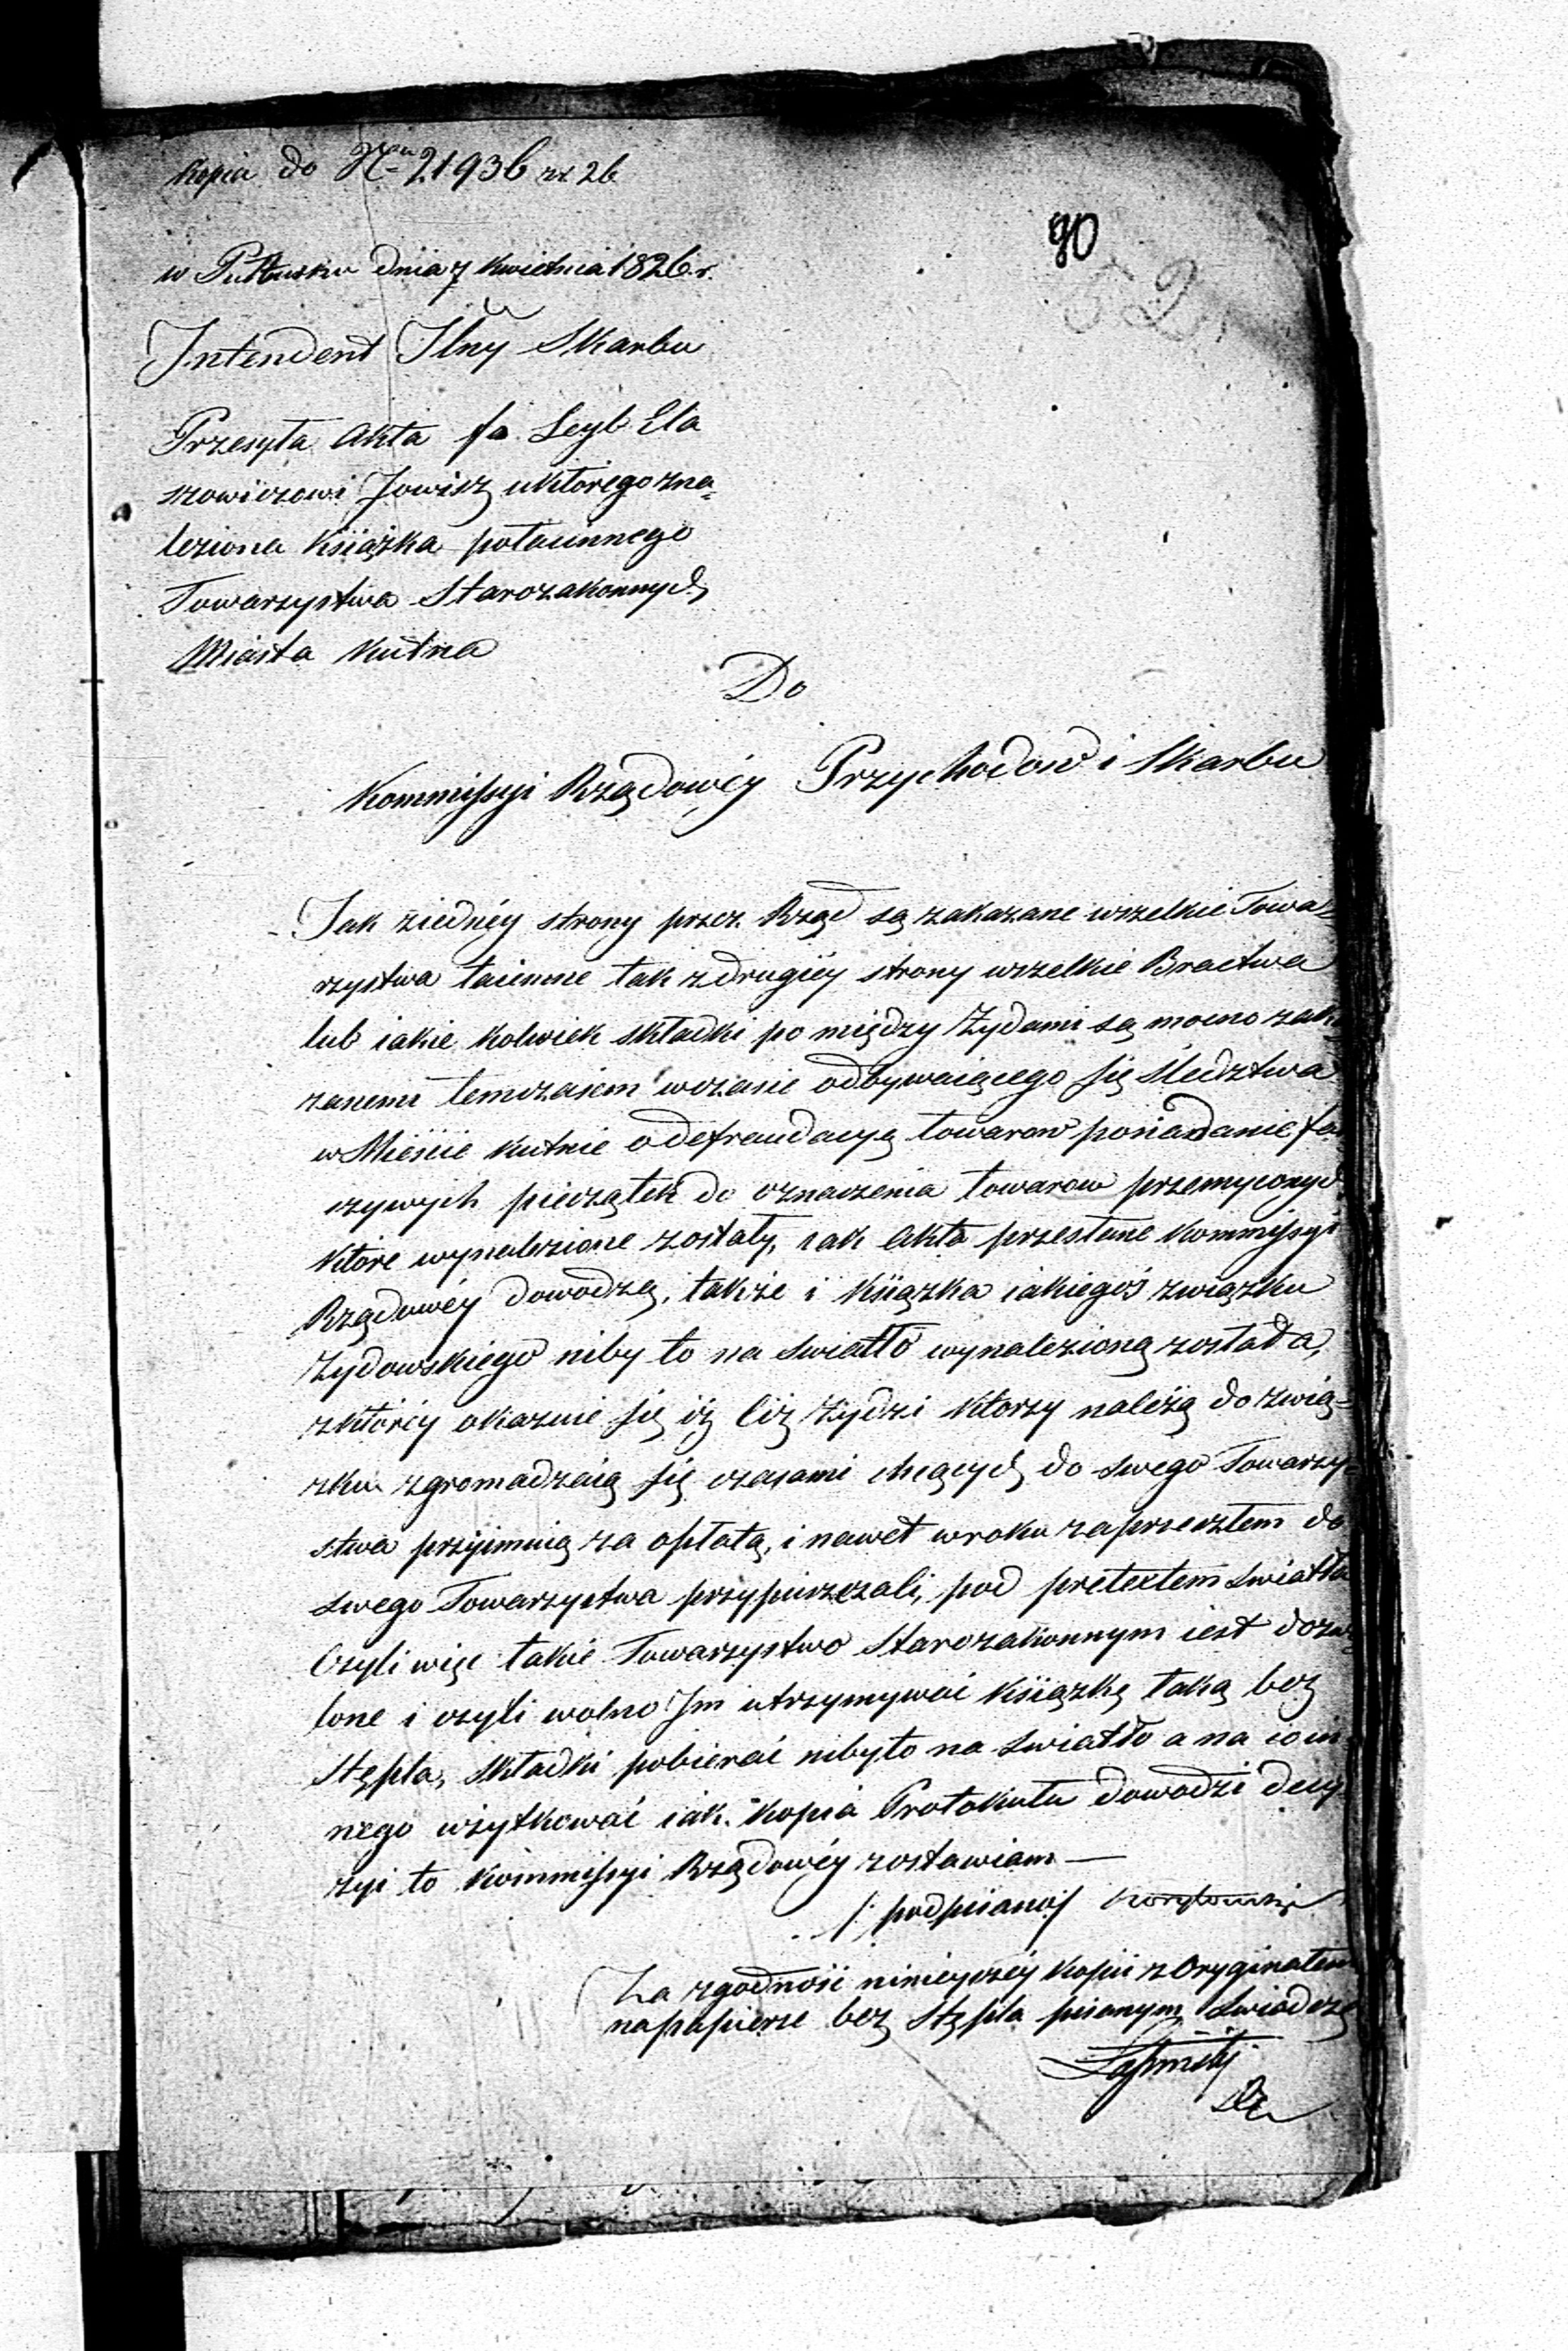 Kopia do Nru 21936 rx 26
90
52
w Pułtusku dnia 7 Kwietnia 1826 r.
Intendent Jlny Skarbu
Przesyła Akta fa Leyb Ela
szowiczowi Jowisz u którego zna-
leziona Książka potaiemnego
Towarzystwa Starozakonnych
Miasta Kutna
Do
Kommissyi Rządowéy Przychodow i Skarbu
Jak ziednéy strony przez Rząd są zakazane wszelkie Towa-
rzystwa taiemne tak z drugiéy strony wszelkie Bractwa
lub iakie kolwiek składki po między Żydami są mocno zaka
zanemi temczasem w czasie odbywaiącego się Śledztwa
w Mieście Kutnie o defraudacyą towarow posiadanie fał
szywych pieczątek do oznaczenia towarow przemyconych
które wynalezione zostały, iak Akta przesłane Kommissyi
Rządowéy dowodzą, także i Książka iakiegoś związku
Żydowskiego niby to na Swiatło wynalezioną została,
z któréy okazuie się iż ciż Żydzi którzy należą do związ-
zku zgromadzaią się czasami chcących do swego Towarzy-
stwa przyimuią za opłatą, i nawet w roku zaprzeszłem do
swego Towarzystwa przypuszczali, pod pretextem swiatła
Czyli więc takie Towarzystwo Starozakonnym iest dozwo
lone i czyli wolno Jm utrzymywać Książkę taką bez
Stępla, składki pobierać niby to na swiatło a na co in
nego użytkować iak Kopia Protokułu dowodzi decy
zyi to Kommissyi Rządowéy zostawiam —
/: podpisano :/
Za zgodność ninieyszéy Kopii z Oryginałem
na papierze bez Stępla pisanym Swiadczę